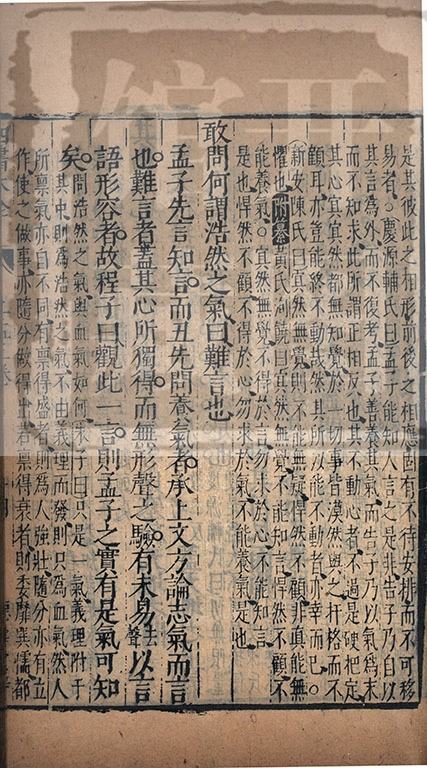 是其彼此之相形前後之相應固有不待安排而不可移
易者○慶源輔氏曰孟子能知人言之是非告子乃自以
其言為外而不復考孟子善養其氣而告子乃以氣為末
而不知求此所謂正相反也其不動心者不過是硬把定
其心冥冥然都無知覺於一切事皆漠然與之扞格而不
顧耳亦豈能終不動哉然其所以能不動者亦幸而已○
新安陳氏曰冥然無覺則不能無疑悍然不顧非眞能無
懼也附纂黃氏洵饒曰冥然無覺不能知言悍然不顧不
能養氣○冥然無覺不得於言勿求於心不能知言
是也悍然不顧不得於心勿求於氣不能養氣是也
敢問何謂浩然之氣曰難言也
孟子先言知言而丑先問養氣者承上文方論志氣而言
也難言者蓋其心所獨得而無形聲之驗有未易去聲以言
語形容者故程子曰觀此一言則孟子之實有是氣可知
矣問浩然之氣與血氣如何朱子曰只是一氣義理附于
其中則為浩然之氣不由義理而發則只為血氣然人
所稟氣亦自不同有稟得盛者則為人強壯隨分亦有立
作使之做事亦隨分做得出若稟得衰者則委靡巽懦都